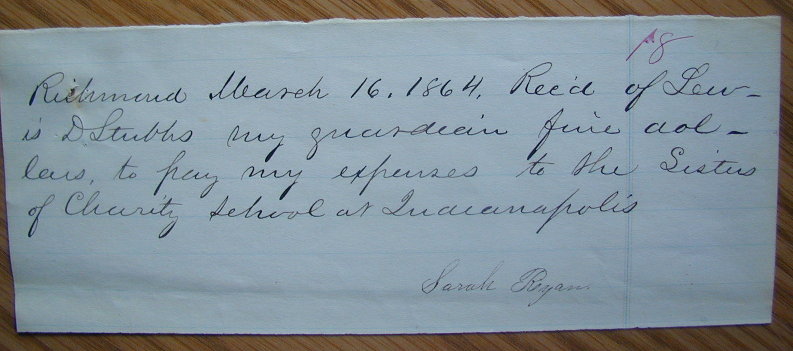 18
Richmond March 16, 1864. Rec'd of Lew-
is D. Stubbs my guardian five dol-
lars, to pay my expenses to the Sisters
of Charity school at Indianapolis
Sarah Ryan